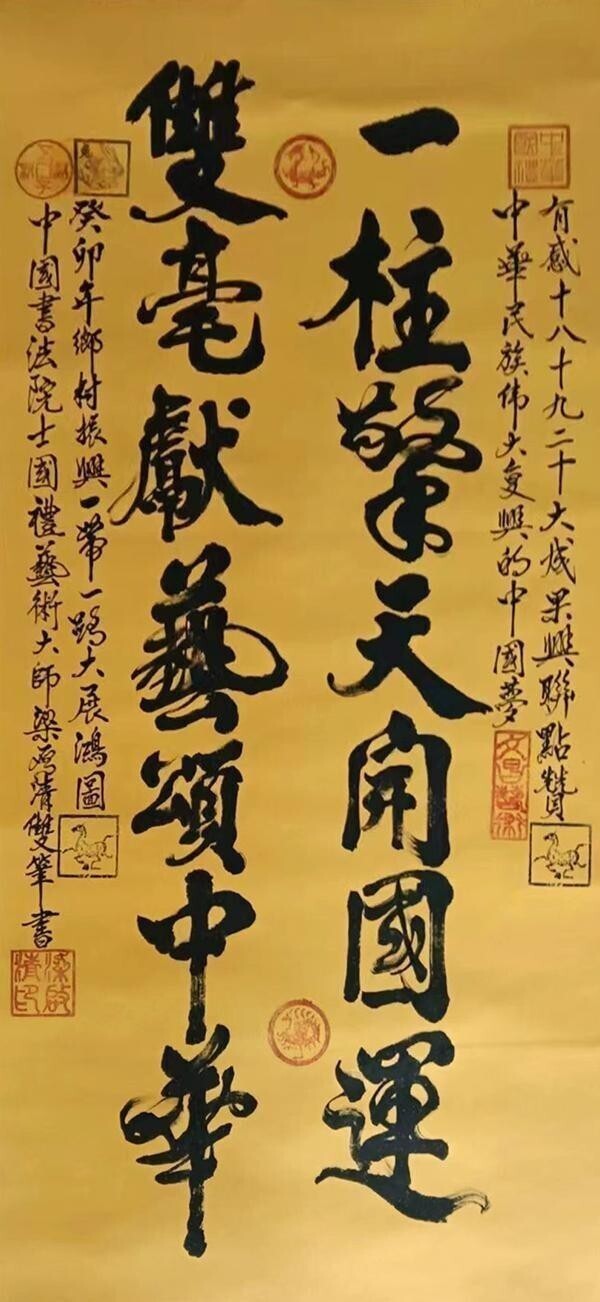 有感十八十九二十大成果興聯點贊
中華民族伟大复興的中國夢
一柱擎天開國運
雙毫獻藝頌中華
癸卯年鄉村振興一帶一路大展鴻圖
中國書法院士國禮藝術大師梁启清雙筆書
梁啟清印